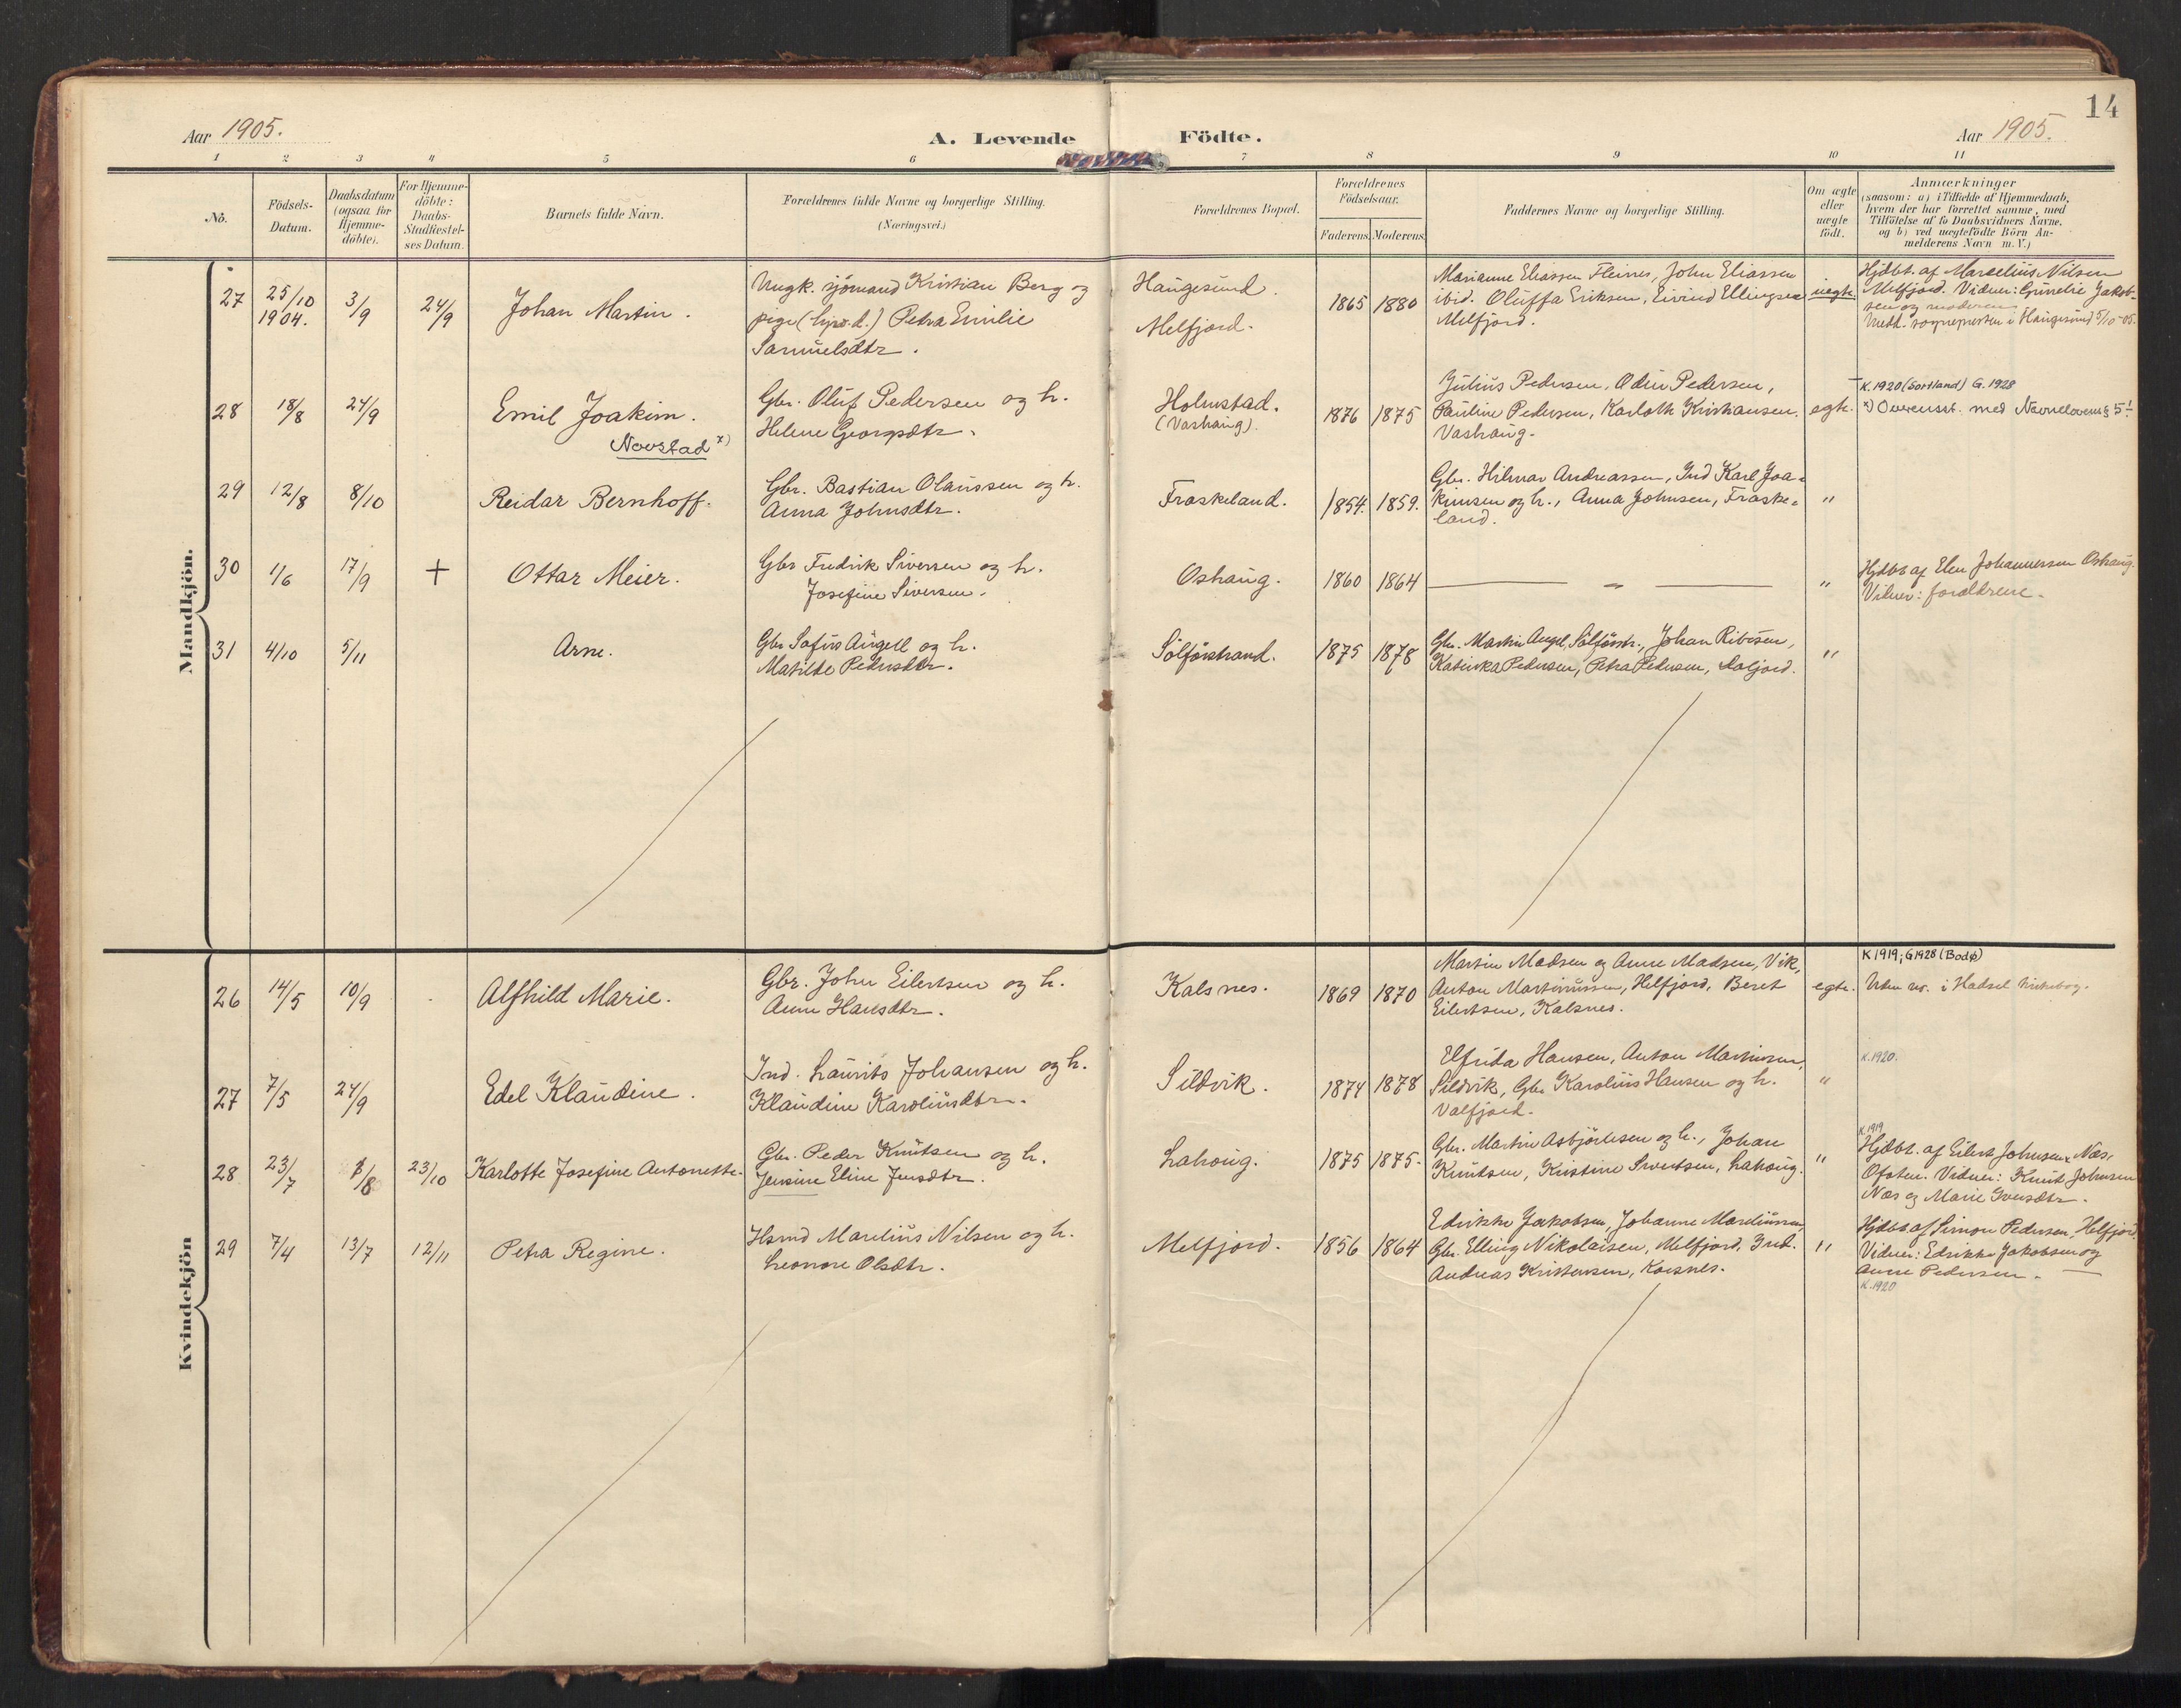 14
Aar 1905.
A. Levende Födte.
Aar 1905.
1 2 3 4 5 6 7 8 9 10 11
No.
Födsels-
Datum.
Daabsdatum
(ogsaa for
Hjemme-
döbte).
For Hjemme-
döbte:
Daabs-
Stadfæstel-
ses Datum.
Barnets fulde Navn.
Forældrenes fulde Navne og borgerlige Stilling.
(Næringsvei.)
Forældrenes Bopæl.
Forældrenes
Födselsaar.
Faderens. Moderens.
Faddernes Navne og borgerlige Stilling.
Om ægte
eller
uægte
födt.
Anmærkninger
(saasom: a) i Tilfælde af Hjemmedaab,
hvem der har forrettet samme, med
Tilföielse af to Daabsvidners Navne,
og b) ved uægtefödte Börn An-
melderens Navn m. V.)
Mandkjön.
27
25/10
1904.
3/9
24/9
Johan Martin.
Ungk. sjömand Kristian Berg og
pige Petra Emilie
Samuelsdtr.
Haugesund.
Melfjord.
1865 1880
Marianne Eliassen Fleines, John Eliassen
ibid. Oluffa Eriksen, Eivind Ellingsen
Melfjord.
uegte.
Hjdbt. af Marselius Nilsen
Melfjord. Vidner: Gunelie Jakob-
sen og moderen
Medd. sognepresten i Haugesund 5/10-05.
28
18/8
24/9
Emil Joakim.
Novstad x)
Gbr. Oluf Pedersen og h.
Helene Georgsdtr.
Holmstad.
(Vashaug).
1876 1875
Julius Pedersen, Odin Pedersen,
Pauline Pedersen, Karloth Kristiansen.
Vashaug.
egte.
K.1920 (Sortland) G. 1928
x) Overensst. med Navnelovens § 5!
29
12/8
8/10
Reidar Bernhoff.
Gbr. Bastian Olaussen og h.
Anna Johnsdtr.
Fraskeland.
1854. 1859.
Gbr. Hilmar Andreassen, Ind Karl Joa=
kimsen og h., Anna Johnsen, Fraske=
land.
"
30
1/6
17/9
+
Ottar Meier.
Gbr Fredrik Siversen og h.
Josefine Siversen.
Oshaug.
1860 1864
— " —
"
Hjdbt af Elen Johannessen Oshaug.
Vidner: forældrene.
31
4/10
5/11
Arne.
Gbr Sofus Angell og h.
Matilde Pedersdtr.
Sölförstrand.
1875 1878
Gbr. Martin Angel, Sölförstr., Johan Ribesen,
Katinka Pedersen, Petra Pedersen, Valfjord.
"
Kvindekjön
26
14/5
10/9
Alfhild Marie.
Gbr. John Eilertsen og h.
Anne Hansdtr.
Kalsnes.
1869 1870
Martin Madsen og Anne Madsen, Vik,
Anton Martinussen, Helfjord, Beret
Eilertsen, Kalsnes.
egte.
K 1919; G 1928 (Bodø)
Uden no. i Hadsel kirkebog.
27
7/5
24/9
Edel Klaudine.
Ind. Laurits Johansen og h.
Klaudine Karoliusdtr.
Sildvik.
1874 1878
Elfrida Hansen, Anton Martinsen,
Sildvik, Gbr. Karolius Hansen og h.
Valfjord.
"
K.1920.
28
23/7
/8
23/10
Karlotte Josefine Antonette.
Gbr. Peder Knutsen og h.
Jensine Eline Jensdtr.
Lahaug.
1875 1875.
Gbr. Martin Asbjörnsen og h., Johan
Knutsen, Kristine Sivertsen, Lahaug.
"
K.1919
Hjdbt. af Eilert Johnsen, Næs,
Ofoten. Vidner: Knut Johnsen
Næs og Marie Iversdtr.
29
7/4
13/7
12/11
Petra Regine.
Hsmd Marelius Nilsen og h.
Leonore Olsdtr.
Melfjord.
1856 1864
Edrikke Jakobsen, Johanne Mareliussen
Gbr. Elling Nikolaisen, Melfjord, Ind.
Andreas Kristensen, Kæsnes.
"
Hjdbt af Simon Pedersen, Helfjord.
Vidner: Edrikke Jakobsen og
Anne Pedersen.
K.1920